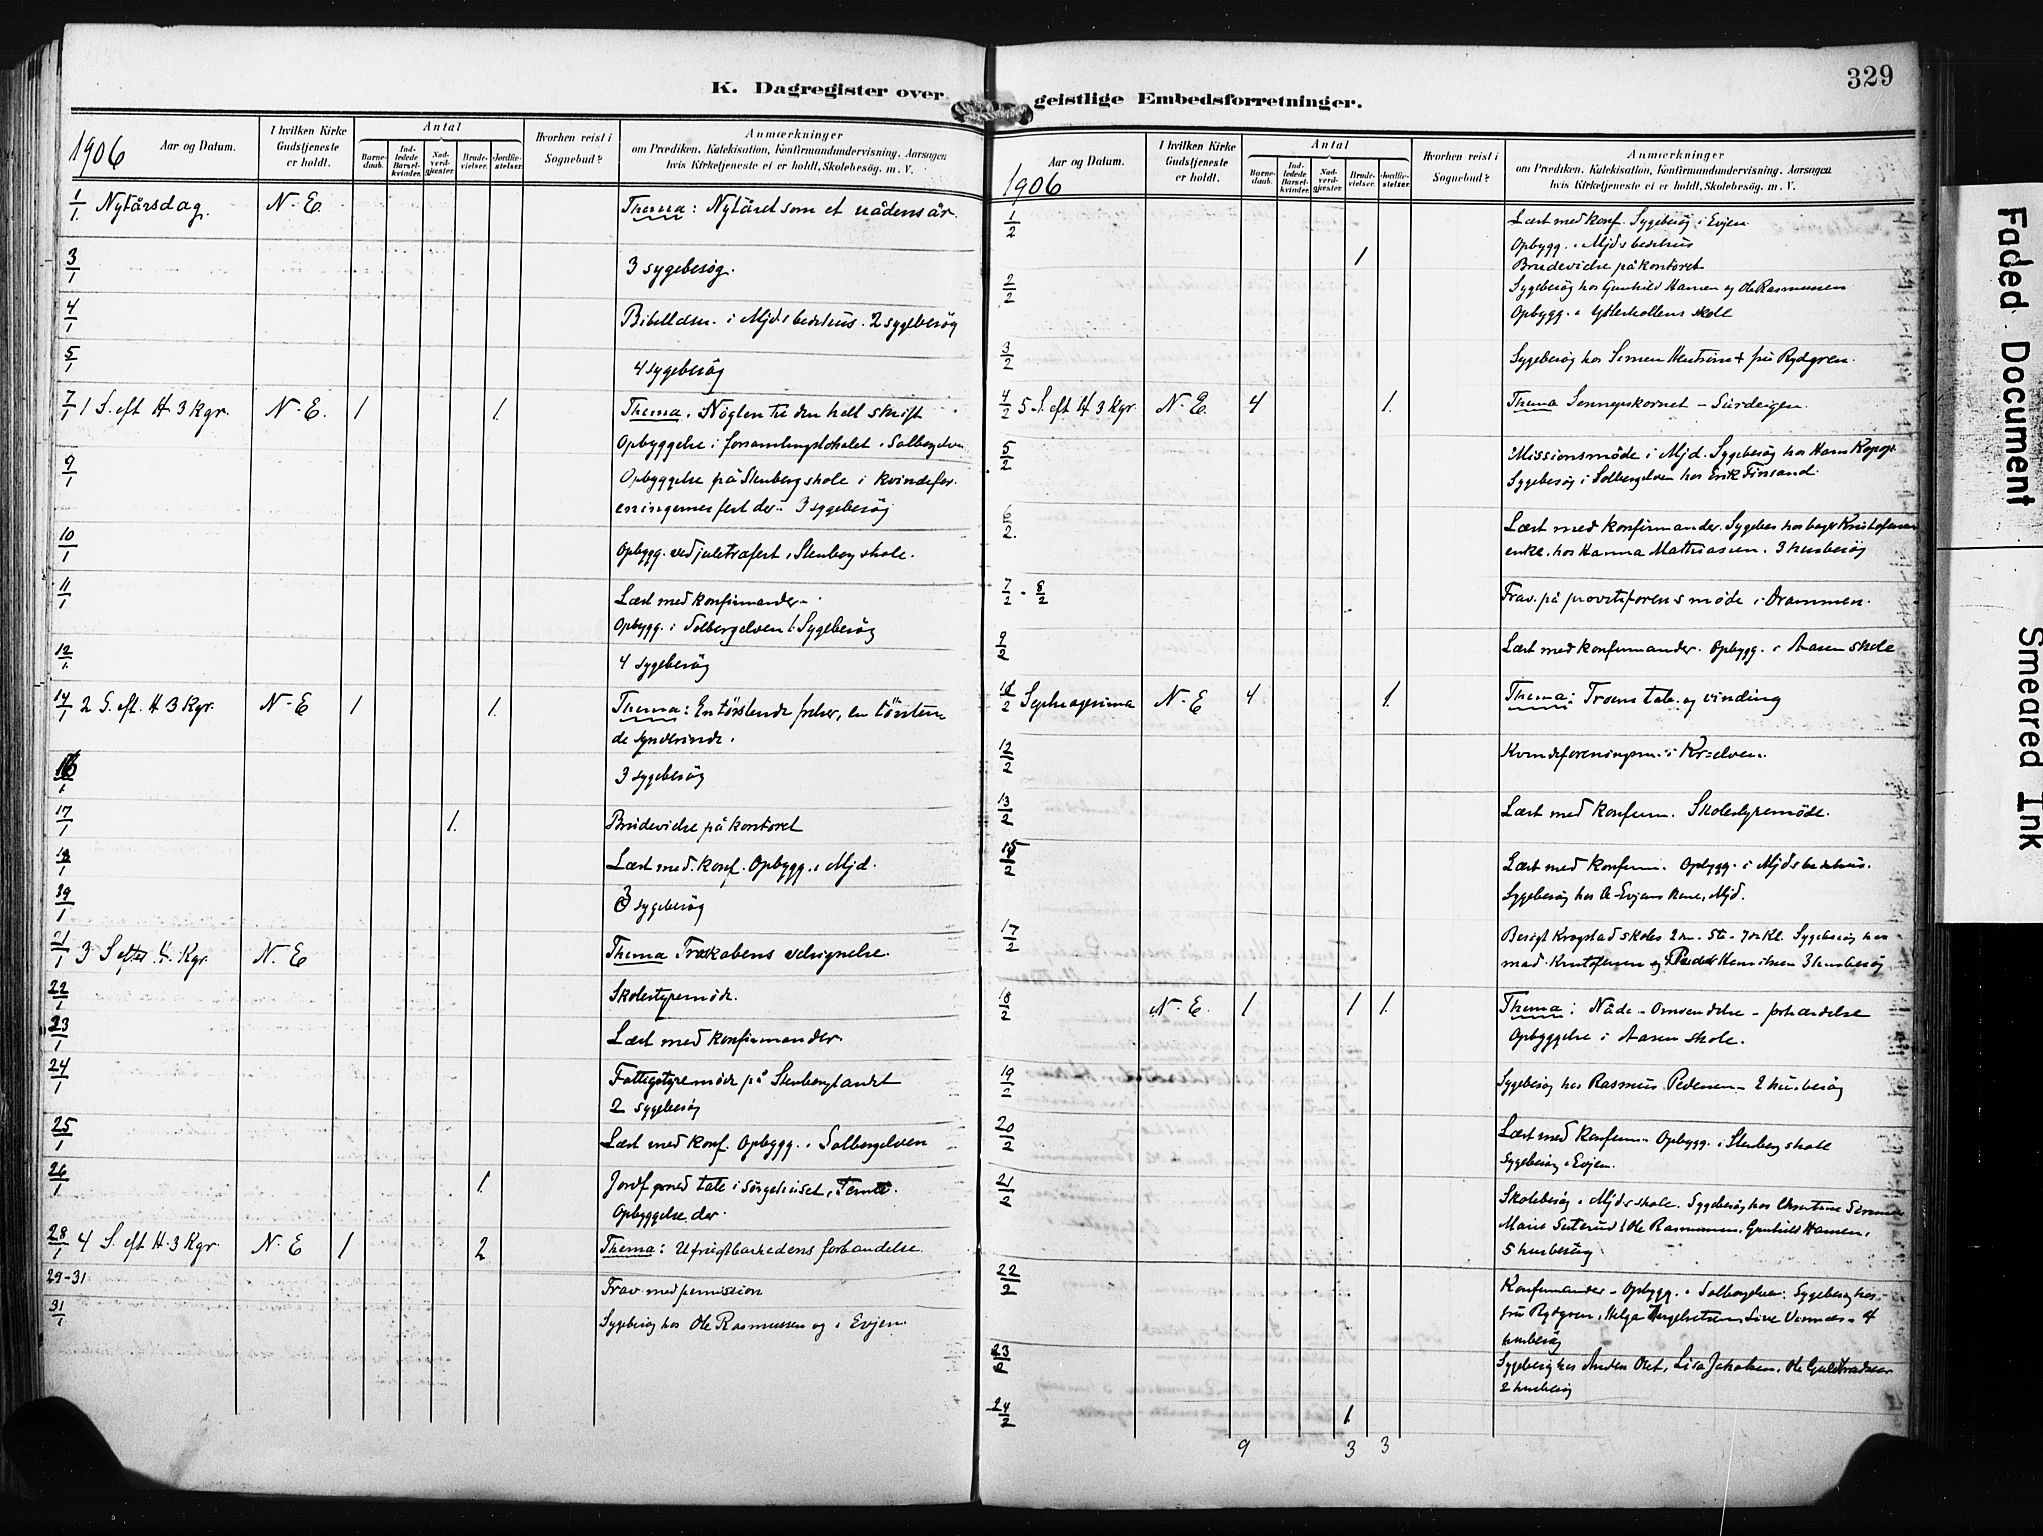 K. Dagregister over
1906
Aar og Datum.
I hvilken Kirke
Gudstjeneste
er holdt.
Antal
Barne-
daab.
Ind-
ledede
Barsel-
kvinder.
Nad-
verd-
gjæster.
Brude-
vielser.
Jordfæ-
stelser.
Hvorhen reist i
Sognebud?
Anmærkninger
om Prædiken, Katekisation, Konfirmandundervisning, Aarsagen
hvis Kirketjeneste ei er holdt, Skolebesøg. m. V.
1/1 Nytårsdag. N. E. Thema: Nytåret som et nådens år.
3/1 3 sygebesøg.
4/1 i Mjds bedehus. 2 sygebesøg
5/1 4 sygebesøg
7/1 1 S. eft H 3 Kgr. N. E. 1 1. Thema. Nøglen til den hell skrift
Opbyggelse i forsamlingslokalet i Solbergelven
9/1 Opbyggelse på Stenberg skole i kvindefor.
eningernes fest der. 3 sygebesøg
10/1 Opbygg. ved juletrefest i Stenberg skole.
11/1 Læst med konfirmander.
Opbygg. i Solbergelven 1. Sygebesøg
12/1 4 sygebesøg
14/1 2 S. eft. H 3 Kgr. N. E 1 1. Thema: En tørstende frelser, en tørsten-
de synderinde.
16/1 3 sygebesøg
17/1 1. Brudevielse på kontoret
18/1 Læst med konf. Opbygg. i Mjd.
19/1 3 sygebesøg
21/1 3 S efter H. Kgr. N. E Thema Troskabens velsignelse.
22/1 Skolestyremøde.
23/1 Læst med konfirmander.
24/1 Fattigstyremøde på Stenberglandet
2 sygebesøg
25/1 Læst med konf. Opbygg. i Solbergelven
26/1 1. Jordf med tale i sørgehuset,
Opbyggelse der.
28/1 4 S. eft H. 3 Kgr. N. E 1 2 Thema: Ufrugtbarhedens forbandelse.
29-31 Frav. med permission
31/1 Sygebesøg hos Ole Rasmussen og i Evjen.
geistlige Embedsforretninger.
329
1906
Aar og Datum.
I hvilken Kirke
Gudstjeneste
er holdt.
Antal
Barne-
daab.
Ind-
ledede
Barsel-
kvinder.
Nad-
verd-
gjæster.
Brude-
vielser.
Jordfæ-
stelser.
Hvorhen reist i
Sognebud?
Anmærkninger
om Prædiken, Katekisation, Konfirmandundervisning, Aarsagen
hvis Kirketjeneste ei er holdt, Skolebesøg. m. V.
1/2 Læst med konf. Sygebesøg i Evjen.
Opbygg. i Mjds bedehus
1 Brudevielse på kontoret
2/2 Sygebesøg hos Gunhild Hansen og Ole Rasmussen
Opbygg. i skole
3/2 Sygebesøg hos Simen + fru Rydgren.
4/2 5 S. eft H 3 Kgr. N. E. 4 1. Thema Sennepskornet - Surdeigen.
5/2 Missionsmøde i Mjd. Sygebesøg hos Hans
Sygebesøg i Solbergelven hos Erik Finsand.
6/2. Læst med konfirmander. Sygebes hos bager Kristofersens
enke, hos Hanna Mathiasen. 3 husbesøg
7/2 - 8/2 Frav. på provstiforens møde i Drammen.
9/2 Læst med konfirmander. Opbygg. i Aasen skole
11/2 Septuagesima N. E 4 1. Thema: Troens tab og vinding
12/2 Kvindeforeningen i Kr-elven.
13/2 Læst med konfirm. Skolestyremøde.
15/2 Læst med konfirm. Opbygg. i Mjds bedehus.
Sygebesøg hos O. Evjens kone, Mjd.
17/2 Besøgt Krogstad skoles 2den - 5te - 7de Kl. Sygebesøg hos
mad. Kristofersen og Peder Henriksen 3 husbesøg
18/2 N. E. 1 1 1. Thema: Nåde - Omvendelse - forhærdelse
Opbyggelse i Aasen skole.
19/2 Sygebesøg hos Rasmus Pedersen - 2 husbesøg
20/2 Læst med Konfirm. Opbygg. i Stenberg skole
Sygebesøg i Evjen.
21/2 Skolebesøg i Mjds skole. Sygebesøg hos
Marie Ole Rasmussen, Gunhild Hansen,
5 husbesøg
22/2 Konfirmander - Opbygg. i Solbergelven. Sygebesøg hos
fru Rydgren, Helga 4
husbesøg
23/2 Sygebesøg hos Anders Olset, Lisa Jakobsen, Ole
2 husbesøg
24/2 1
9 3 3
Faded Document
Smeared Ink